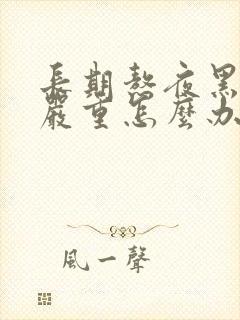 長期熬夜黑
嚴重怎麼办
風一聲